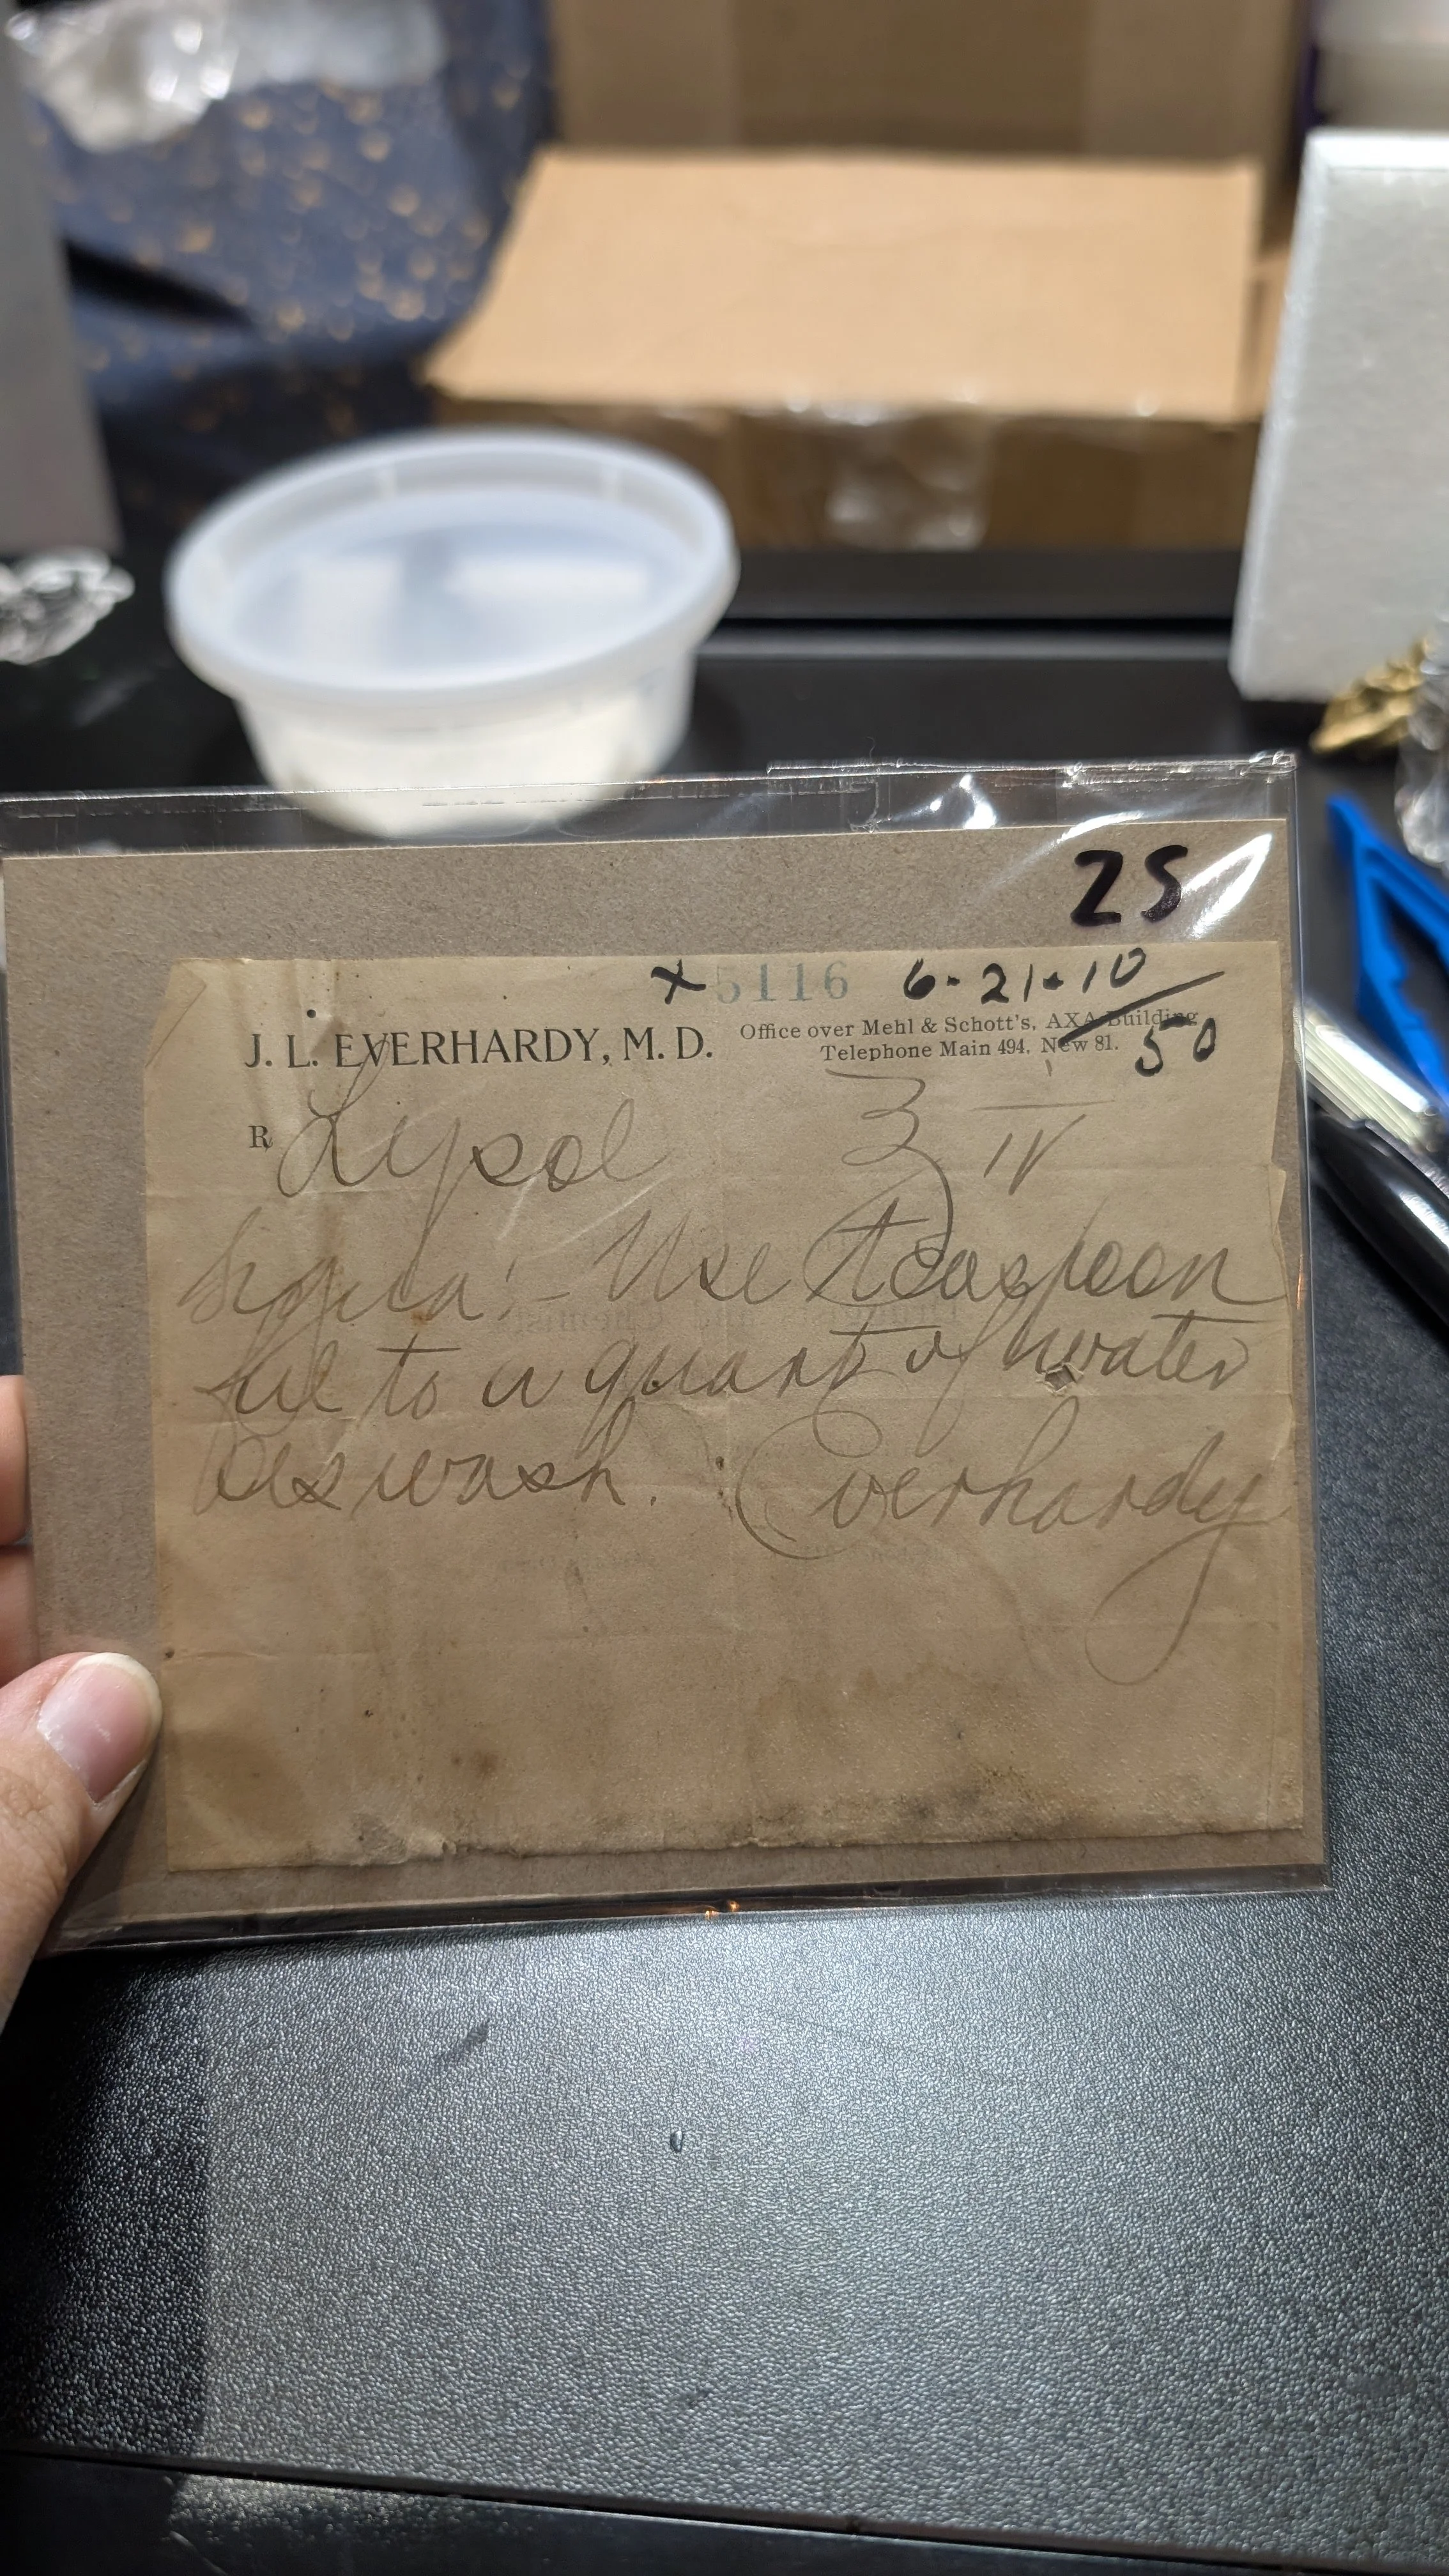 25
x 5116 6-21-10
50
J. L. EVERHARDY, M. D.
Office over Mehl & Schott's, AXA Building
Telephone Main 494. New 81.
℞ Lysol ℥ IV
Signa:- Use teaspoon
ful to a quart of water
as wash. Everhardy